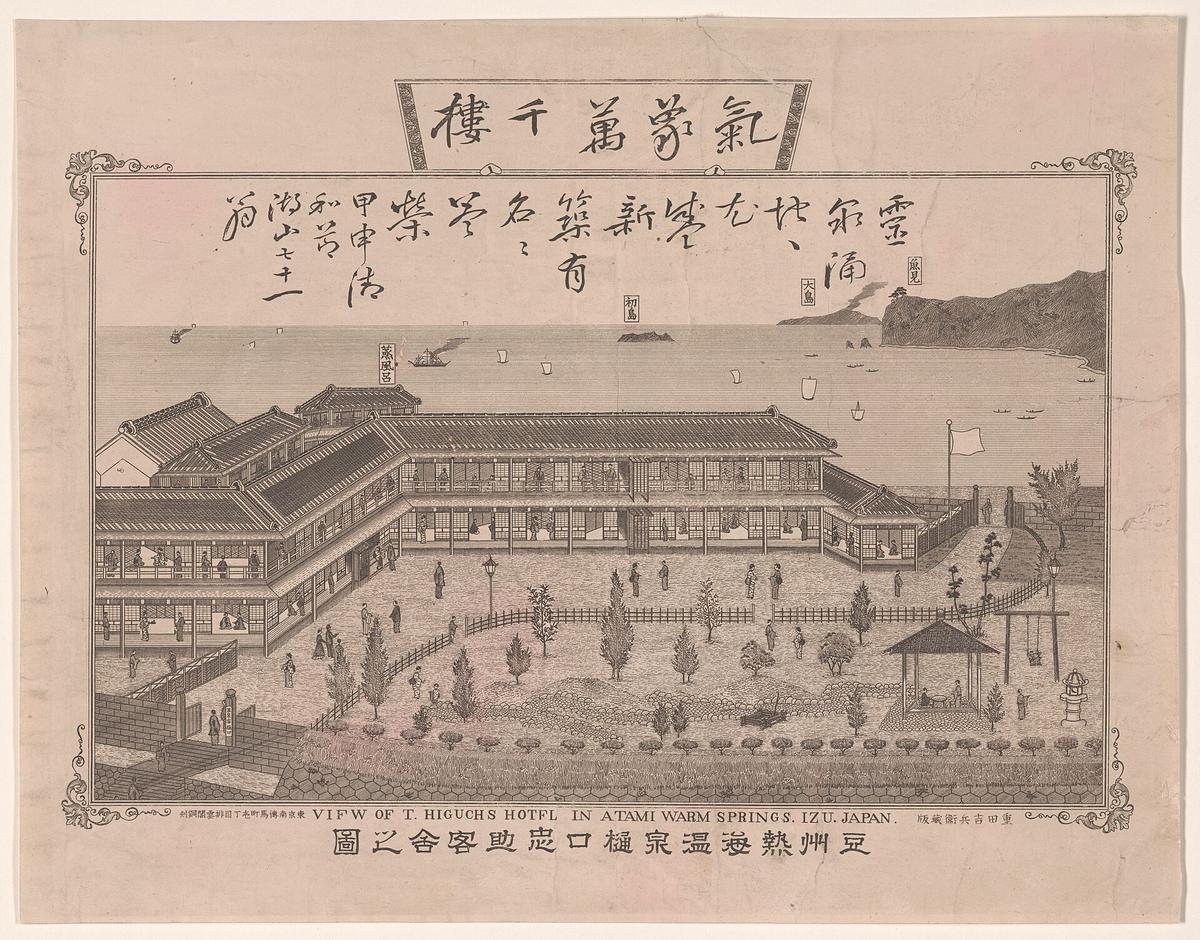 氣象萬千樓
靈
泉涌
地、
尤
盛
新
築有
名々
益
榮
甲申清
和節
湖山七十一
翁
魚見
大島
初島
蒸風呂
東京南傳馬町壱丁目排雲閣銅刻
VIFW OF T. HIGUCHS HOTFL IN ATAMI WARM SPRINGS. IZU. JAPAN.
重田吉兵衛藏版
豆州熱海温泉樋口忠助客舍之圖